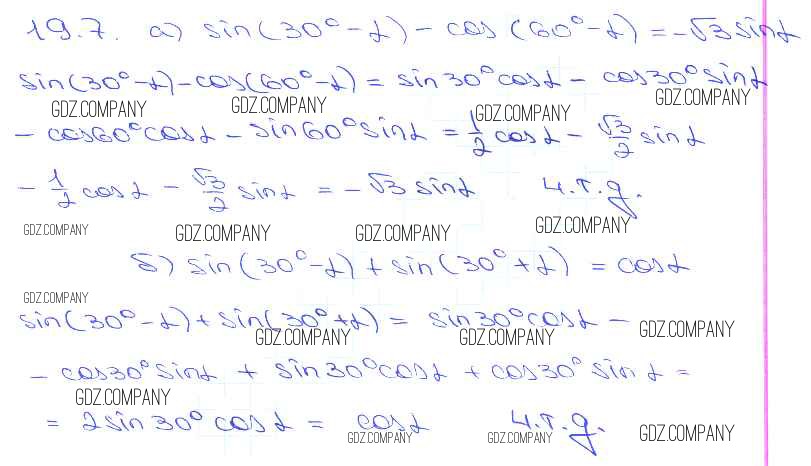 19.7. а) sin(30°-α) - cos(60°-α) = -√3 sinα
sin(30°-α)-cos(60°-α) = sin30°cosα - cos30°sinα
GDZ.COMPANY GDZ.COMPANY GDZ.COMPANY GDZ.COMPANY
- cos60°cosα - sin60°sinα = 1/2 cosα - √3/2 sinα
- 1/2 cosα - √3/2 sinα = -√3 sinα ч.т.д.
GDZ.COMPANY GDZ.COMPANY GDZ.COMPANY GDZ.COMPANY
б) sin(30°-α) + sin(30°+α) = cosα
GDZ.COMPANY
sin(30°-α)+sin(30°+α) = sin30°cosα -
GDZ.COMPANY GDZ.COMPANY GDZ.COMPANY
- cos30°sinα + sin30°cosα + cos30°sinα =
GDZ.COMPANY
= 2sin30°cosα = cosα ч.т.д.
GDZ.COMPANY GDZ.COMPANY GDZ.COMPANY